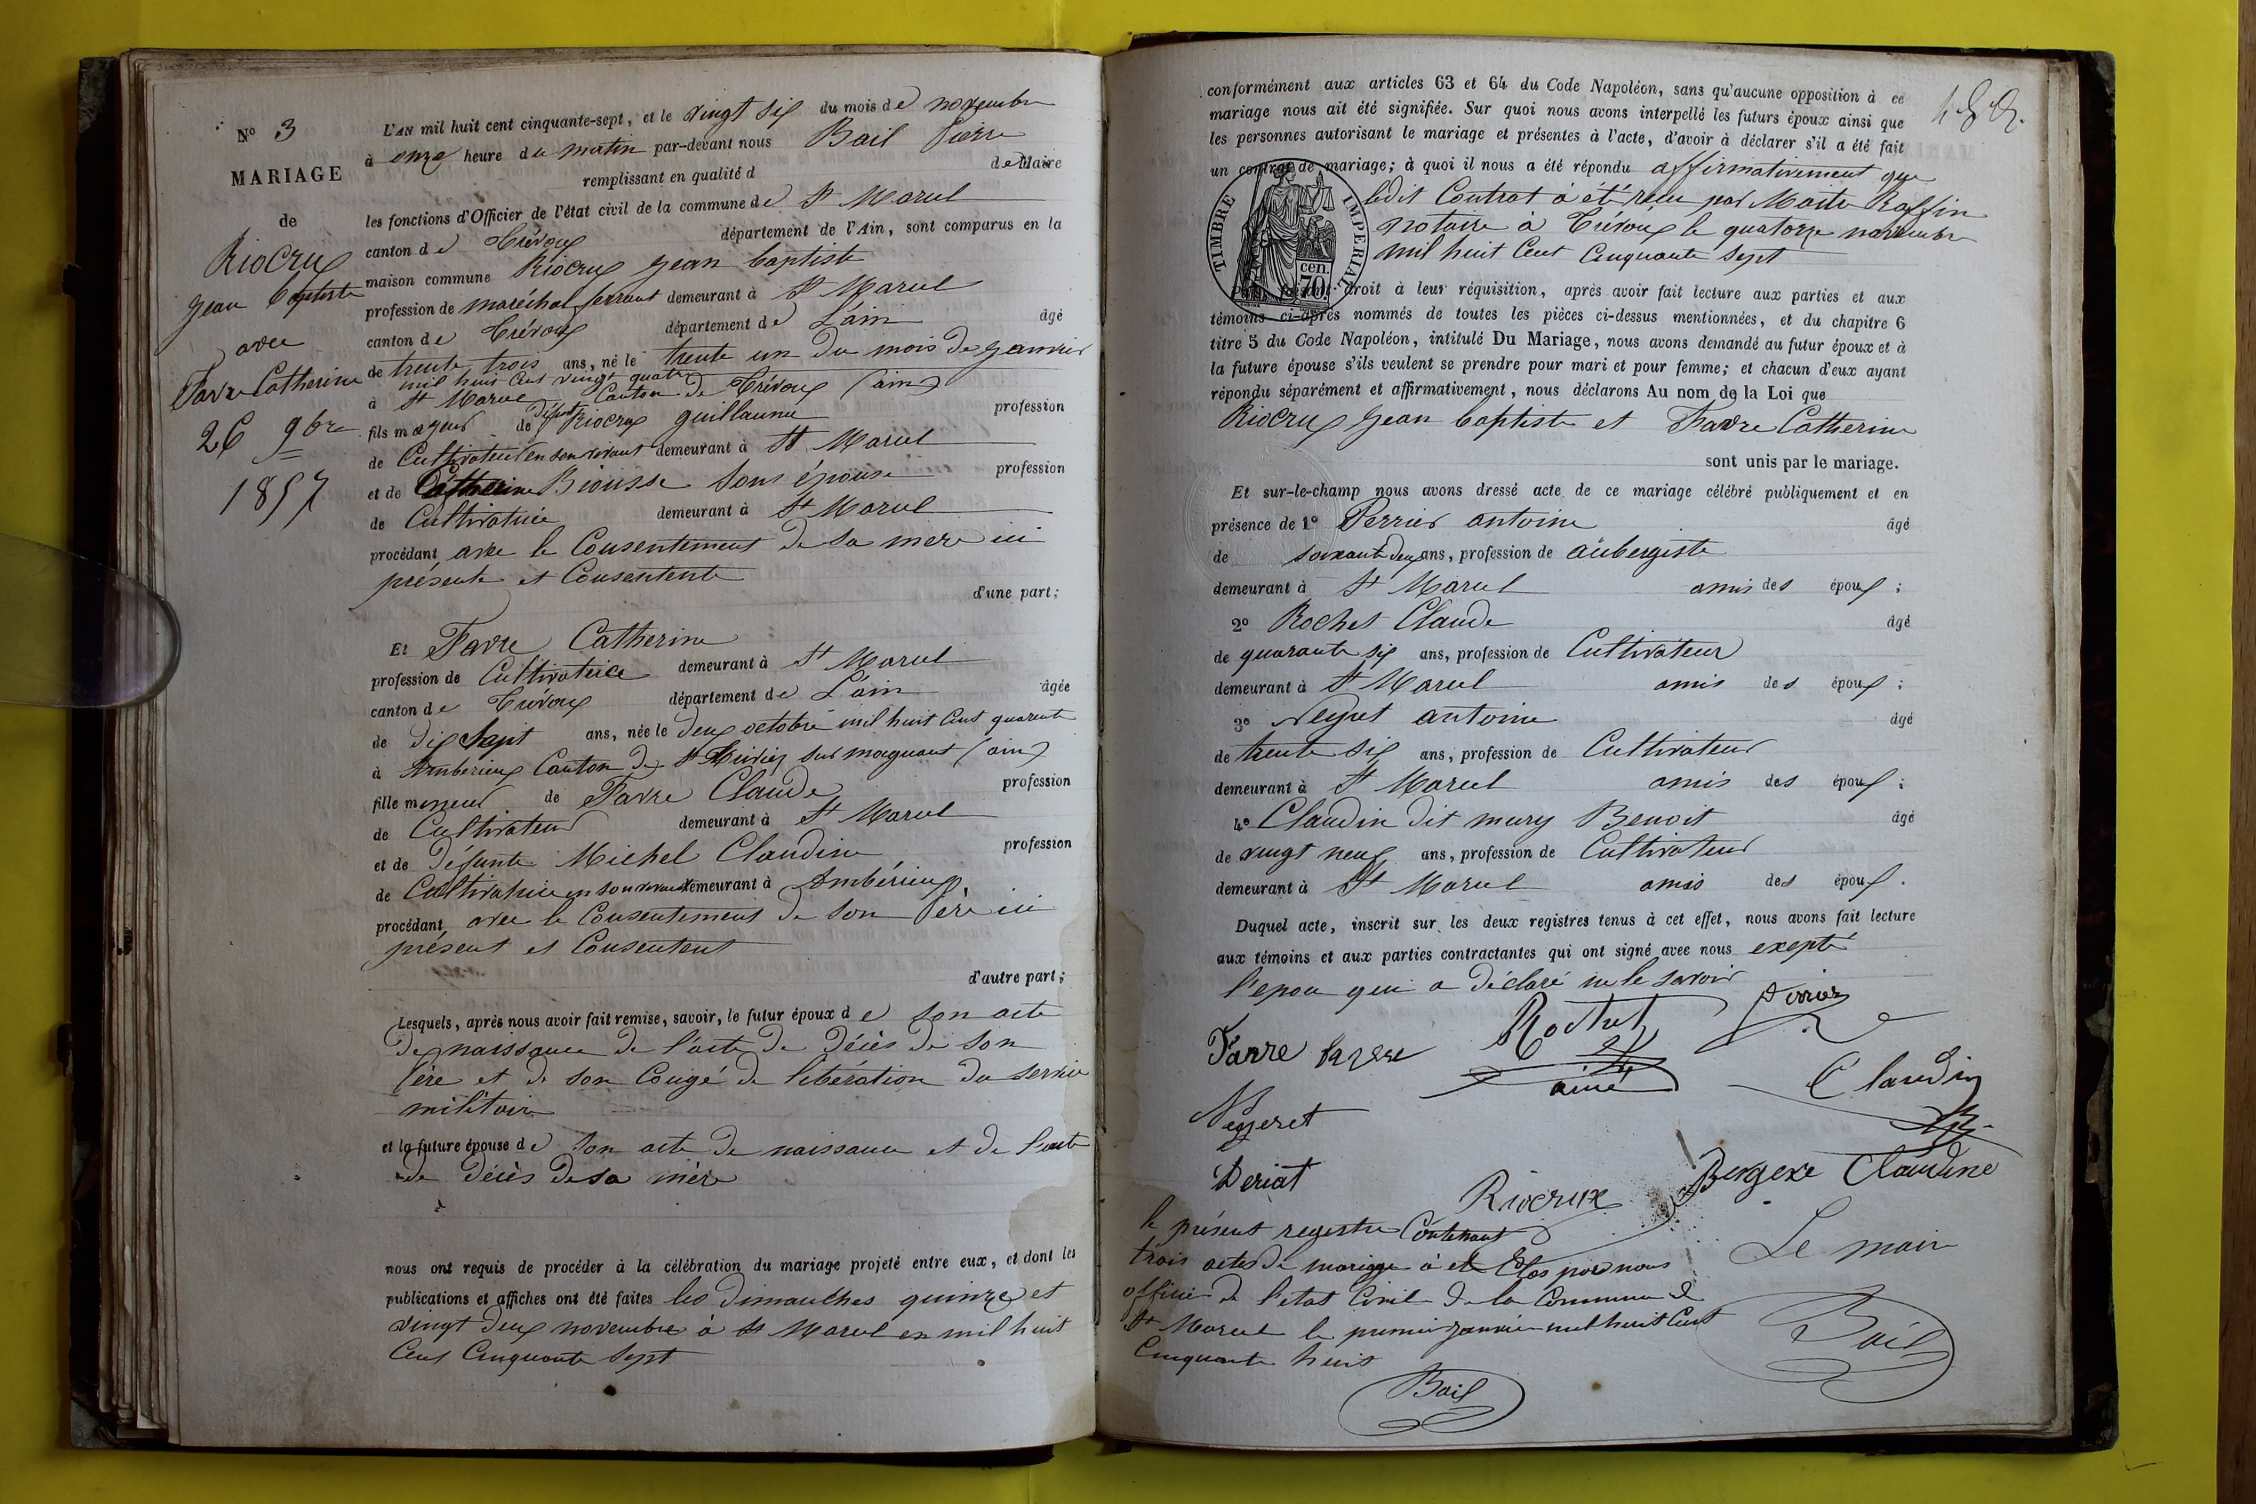 N° 3
MARIAGE
de
Riocrux
Jean Baptiste
avec
Favre Catherine
26 9bre
1857
L'AN mil huit cent cinquante-sept, et le vingt six du mois de novembre
à onze heure du matin par-devant nous Bail Pierre
remplissant en qualité d de Maire
les fonctions d'Officier de l'état civil de la commune de St Marcel
canton de Trévoux département de l'Ain, sont comparus en la
maison commune Riocrux Jean baptiste
profession de maréchal ferrant demeurant à St Marcel
canton de Trévoux département de L'ain âgé
de trente trois ans, né le trente un du mois de Janvier
mil huit Cent vingt quatre
à St Marcel Canton de Trévoux (ain)
fils majeur de défunt Riocrux Guillaume profession
de Cultivateur en son vivant demeurant à St Marcel
et de Catherine Biousse Sons épouse profession
de Cultivatrice demeurant à St Marcel
procédant avec le Consentement de Sa mère ici
présente et Consentente
d'une part;
Et Favre Catherine
profession de Cultivatrice demeurant à St Marcel
canton de Trévoux département de L'ain âgée
de dix Sept ans, née le deux octobre mil huit Cent quarante
à Ambérieux Canton de St Trivier sur moignans (ain)
fille mineur de Favre Claude profession
de Cultivateur demeurant à St Marcel
et de défunte Michel Claudine profession
de Cultivatrice en son vivant demeurant à Ambérieux,
procédant avec le Consentement de Son Père ici
présent et Consentent
d'autre part;
Lesquels, après nous avoir fait remise, savoir, le futur époux de son acte
de naissance de l'acte de décès de son
Père et de son Congé de libération du service
militair
et la future épouse de son acte de naissance et de l'acte
de décès de sa mère
nous ont requis de procéder à la célébration du mariage projeté entre eux, et dont les
publications et affiches ont été faites les dimanches quinze et
vingt deux novembre à St Marcel en mil huit
Cent Cinquante Sept
conformément aux articles 63 et 64 du Code Napoléon, sans qu'aucune opposition à ce
mariage nous ait été signifiée. Sur quoi nous avons interpellé les futurs époux ainsi que
les personnes autorisant le mariage et présentes à l'acte, d'avoir à déclarer s'il a été fait
un contrat de mariage; à quoi il nous a été répondu affirmativement que
ledit Contrat à été réçu par Maitre Raffin
notaire à Trévoux le quatorze novembre
mil huit Cent Cinquante Sept
TIMBRE IMPERIAL
cen.
70
droit à leur réquisition, après avoir fait lecture aux parties et aux
témoins ci-après nommés de toutes les pièces ci-dessus mentionnées, et du chapitre 6
titre 5 du Code Napoléon, intitulé Du Mariage, nous avons demandé au futur époux et à
la future épouse s'ils veulent se prendre pour mari et pour femme; et chacun d'eux ayant
répondu séparément et affirmativement, nous déclarons Au nom de la Loi que
Riocrux Jean baptiste et Favre Catherine
sont unis par le mariage.
Et sur-le-champ nous avons dressé acte de ce mariage célébré publiquement et en
présence de 1° Perrier antoine âgé
de soixante deux ans, profession de aubergiste
demeurant à St Marcel amis des époux;
2° Rochet Claude âgé
de quarante six ans, profession de Cultivateur
demeurant à St Marcel amis des époux;
3° Neyret antoine âgé
de trente six ans, profession de Cultivateur
demeurant à St Marcel amis des époux;
4° Claudin dit mury Benoit âgé
de vingt neuf ans, profession de Cultivateur
demeurant à St Marcel amis des époux.
Duquel acte, inscrit sur les deux registres tenus à cet effet, nous avons fait lecture
aux témoins et aux parties contractantes qui ont signé avec nous exepté
l'epou qui a déclaré ne le savoir
Perrier
Rochet
ainé
Favre
Claudin
Neyeret
Deriat
Riocrux
Bergere Claudine
le présent registre Contenant
trois actes de mariage à été Clos par nous
officier de l'état Civil de la Commune de
St Marcel le premier janvier mil huit Cent
Cinquante huit
Le mair
Bail
Bail